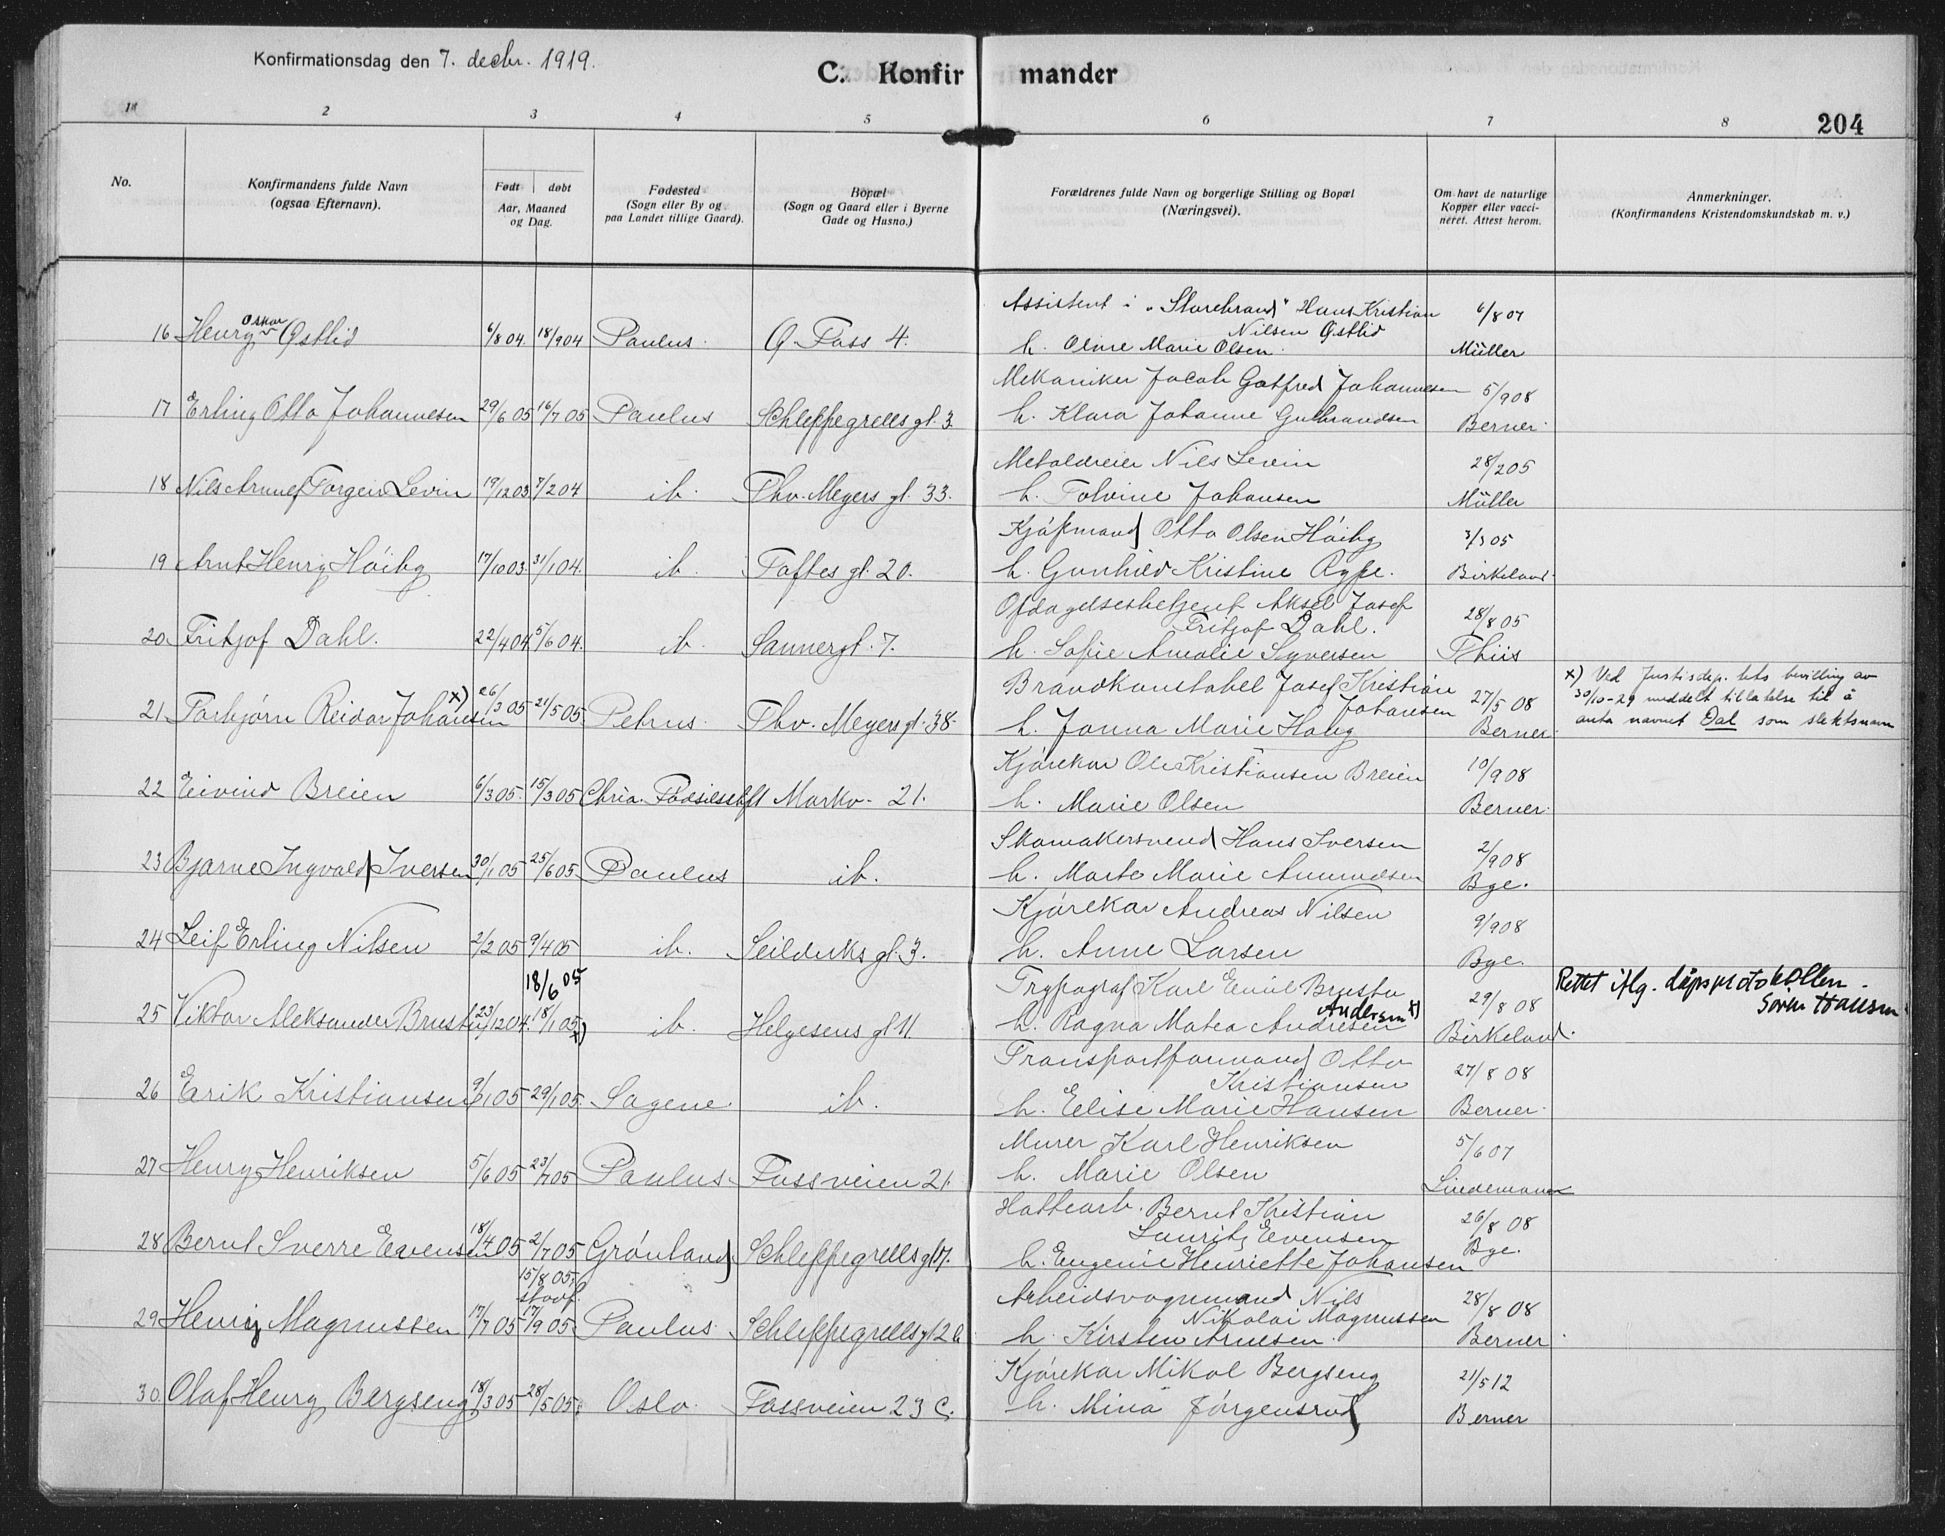 Konfirmationsdag den 7. decbr. 1919.
C. Konfirmander
204
1 2 3 4 5 6 7 8
No.
Konfirmandens fulde Navn (ogsaa Efternavn).
Født | døbt Aar, Maaned og Dag.
Fødested (Sogn eller By og paa Landet tillige Gaard).
Bopæl (Sogn og Gaard eller i Byerne Gade og Husno.)
Forældrenes fulde Navn og borgerlige Stilling og Bopæl (Næringsvei).
Om havt de naturlige Kopper eller vaccineret. Attest herom.
Anmerkninger. (Konfirmandens Kristendomskundskab m. v.)
Assistent i "Storebrand" Hans Kristian 6/8 07
16 Henry Oskar Østlid 6/8 04 18/9 04 Paulus. Ø. Foss 4. Nilsen Østlid
h. Oline Marie Olsen. Müller
Mekaniker Jacob Gotfred Johannesen 5/9 08
17 Erling Otto Johannesen 29/6 05 16/7 05 Paulus Schleppegrells gt. 3. h. Klara Johanne Gulbrandsen Berner.
Metaldreier Nils Levin 28/2 05
18 Nils Arnulf Torgeir Levin 19/12 03 7/2 04 ib. Thv. Meyers gt. 33. h. Tolvine Johansen Müller
Kjøpmand Otto Olsen Høiby 3/3 05
19 Arnt Henry Høiby 17/10 03 31/1 04 ib. Toftes gt. 20. h. Gunhild Kristine Rype. Birkeland.
Opdagelsesbetjent Aksel Josef 28/8 05
Fritjof Dahl.
20. Fritjof Dahl. 22/4 04 5/6 04. ib. Sannergt. 7. h. Sofie Amalie Syversen Thiis
Brandkonstabel Josef Kristian 27/5 08 x) Ved Justisdep.tets bevilling av
Johansen 30/10-29 meddelt tillatelse til å
21. Torbjørn Reidar Johansen x) 26/3 05 21/5 05 Petrus. Thv. Meyers gt. 38. h. Jonna Marie Høieg Berner. anta navnet Dal som slektsnavn
Kjørekar Ole Kristiansen Breien 10/9 08
22 Eivind Breien 6/3 05. 15/3 05 Chria. Fødselsstift Markv. 21. h. Marie Olsen Berner.
Skomakersvend Hans Iversen 2/9 08
23 Bjarne Ingvald Iversen 30/1 05 25/6 05 Paulus ib. h. Marte Marie Amundsen Bye.
Kjørekar Andreas Nilsen 9/9 08
24 Leif Erling Nilsen 2/2 05 9/4 05 ib. Seilduks gt. 3. h. Anne Larsen Bye.
18/6 05 Typograf Karl Emil Brustu 29/8 08 Rettet iflg. dåpsprotokollen.
Andersen x) Søren Hansen
25 Viktor Aleksander Brustu 23/12 04. 18/1 05 x) ib. Helgesens gt 11. h. Ragna Matea Andresen Birkeland.
Transportformand Otto 27/8 08
Kristiansen
26 Erik Kristiansen 9/1 05 29/1 05. Sagene ib. h. Elise Marie Hansen Berner.
Murer Karl Henriksen 5/6 07
27 Henry Henriksen 5/6 05 23/7 05 Paulus Fossveien 21. h. Marie Olsen Lindemann
Hattearb. Bernt Kristian 26/8 08
Lauritz Evensen
28 Bernt Sverre Evensen 18/4 05 2/7 05 Grønland Schleppegrells gt 17. h. Eugenie Henriette Johansen Bye.
15/8 05. Arbeidsvognmand Nils 28/8 08
stadf. Nikolai Magnussen
29 Henry Magnussen 17/7 05 17/9 05 Paulus Schleppegrells gt 2 b h. Kirsten Arnesen. Berner
Kjørekar Mikal Bergseng 21/5 12
30. Olaf Henry Bergseng 18/3 05 28/5 05. Oslo Fossveien 23 C. h. Mina Jørgensrud Berner